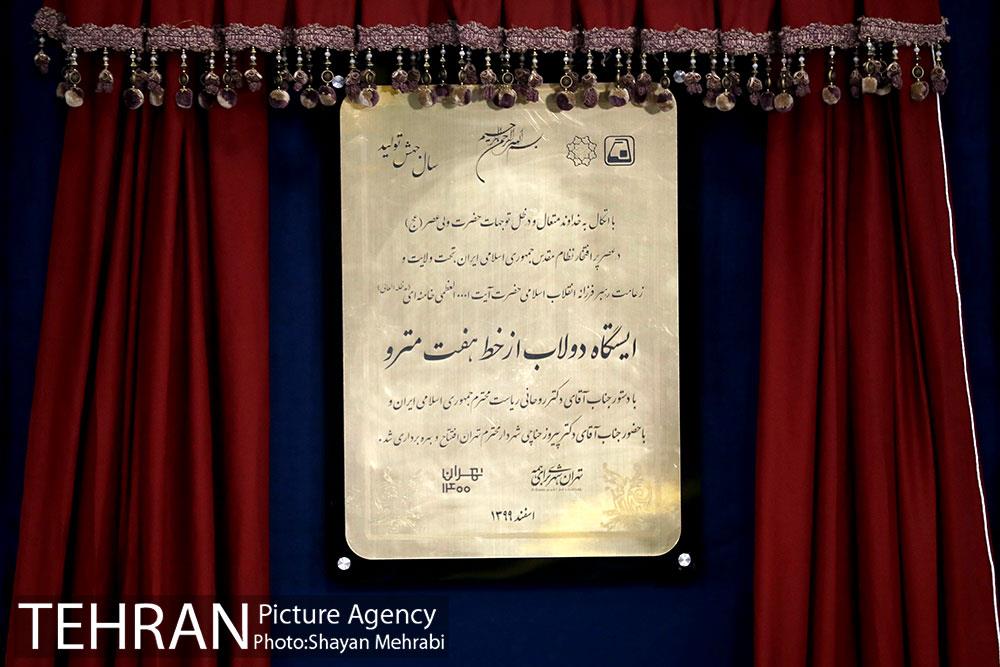 بسم الله الرحمن الرحیم
سال جهش تولید
با اتکال به خداوند متعال و در ظل توجهات حضرت ولی عصر (عج)
در عصر پر افتخار نظام مقدس جمهوری اسلامی ایران، تحت ولایت و
زعامت رهبر فرزانه انقلاب اسلامی حضرت آیت ا... العظمی خامنه ای (مدظله العالی)
ایستگاه دولاب از خط هفت مترو
با دستور جناب آقای دکتر روحانی ریاست محترم جمهوری اسلامی ایران و
با حضور جناب آقای دکتر پیروز حناچی شهردار محترم تهران افتتاح و بهره برداری شد.
تهران شهری برای همه
تهران
۱۴۰۰
اسفند ۱۳۹۹
TEHRAN Picture Agency
Photo:Shayan Mehrabi